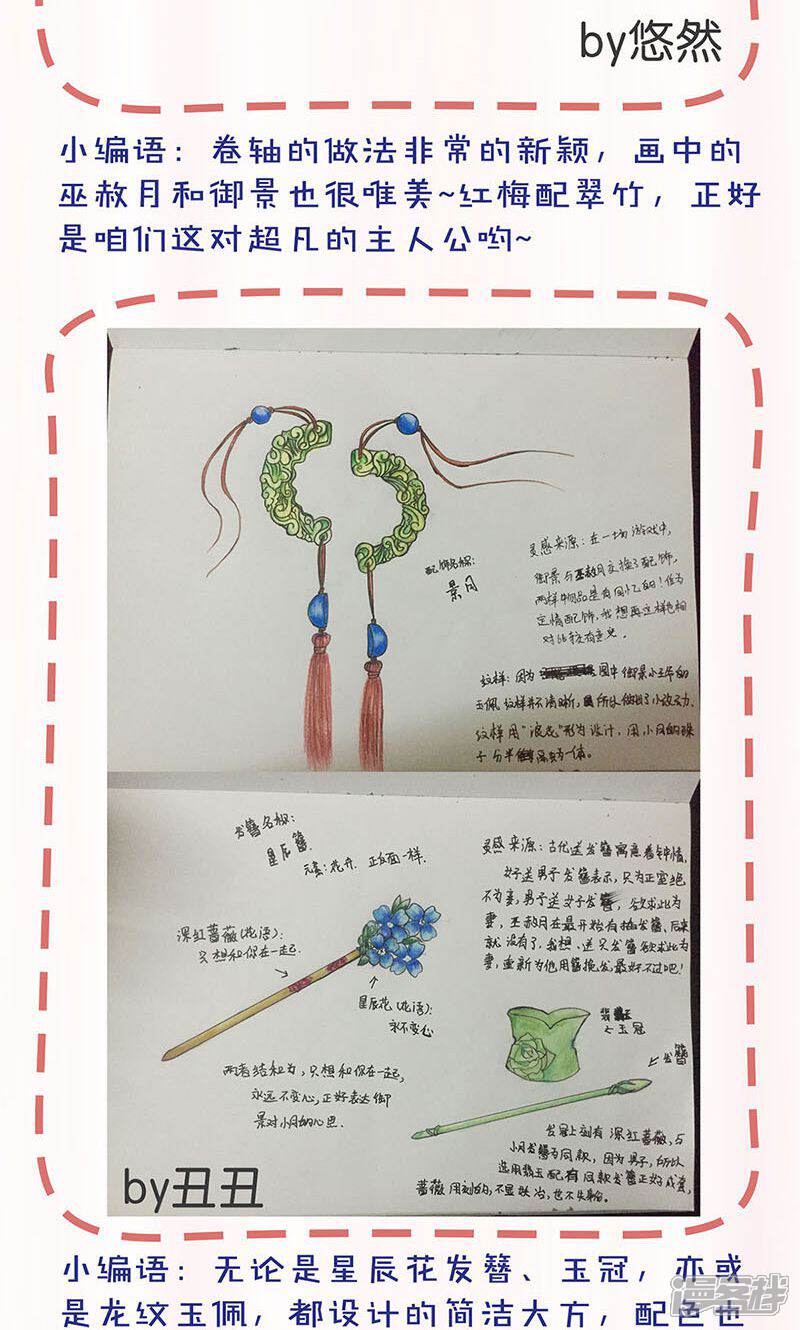 by悠然
小编语：卷轴的做法非常的新颖，画中的
巫赦月和御景也很唯美~红梅配翠竹，正好
是咱们这对超凡的主人公哟~
配饰名称：
景月
灵感来源：在一场游戏中，
御景与巫赦月交换了配饰，
两样物品是有回忆的！作为
定情配饰，我想再这样也相
对比较有意思。
纹样：因为图中御景小王爷的
玉佩纹样并不清晰，所以做出了小改动
纹样用“浪花”形为设计，用小月的珠
子分半合为一体。
发簪名称：
星辰簪
元素：花卉 正反面一样.
深红蔷薇（花语）：
只想和你在一起.
星辰花（花语）：
永不变心
两者结和为，只想和你在一起，
永远不变心，正好表达御
景对小月的心思.
灵感来源：古代送发簪寓意着钟情，
女子送男子发簪表示，只为正室绝
不为妾，男子送女子发簪，欲求此为
妻，巫赦月在最开始有插发簪、后来
就没有了，我想，送只发簪欲求此为
妻，重新为他用簪挽发最好不过吧！
翡翠
玉冠
发簪
发冠上刻有深红蔷薇，与
小月发簪为同款，因为男子，所以
选用翡玉配有同款发簪正好成套，
蔷薇用刻的，不显妖冶，也不失身份。
by丑丑
小编语：无论是星辰花发簪、玉冠，亦或
是龙纹玉佩，都设计的简洁大方，配色也
漫客栈